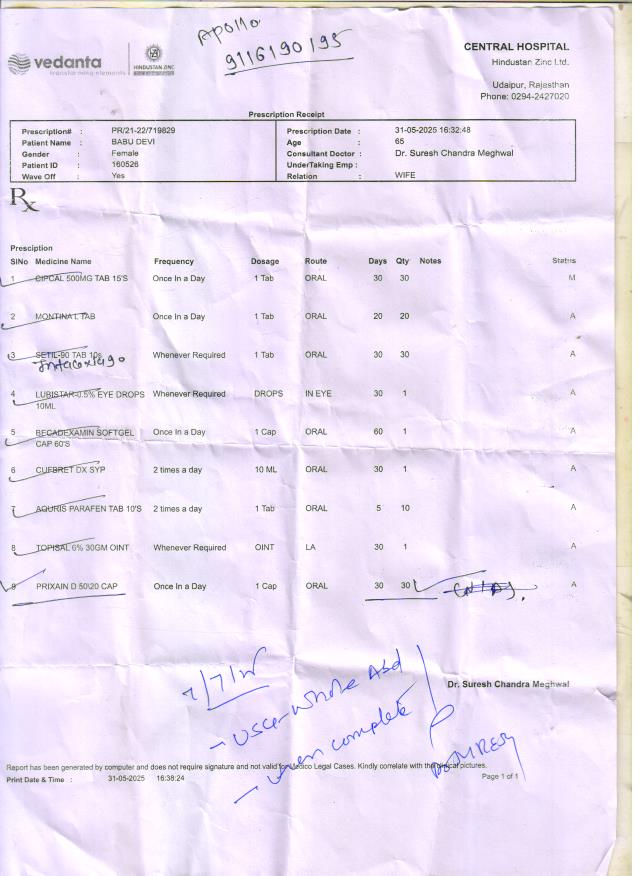 Apollo
9116190195
vedanta
transforming elements
HINDUSTAN ZINC
CENTRAL HOSPITAL
Hindustan Zinc Ltd.
Udaipur, Rajasthan
Phone: 0294-2427020
Prescription Receipt
Prescription# : PR/21-22/719829 Prescription Date : 31-05-2025 16:32:48
Patient Name : BABU DEVI Age : 65
Gender : Female Consultant Doctor : Dr. Suresh Chandra Meghwal
Patient ID : 160526 UnderTaking Emp :
Wave Off : Yes Relation : WIFE
Rx
Presciption
SlNo Medicine Name Frequency Dosage Route Days Qty Notes Status
1 CIPCAL 500MG TAB 15'S Once In a Day 1 Tab ORAL 30 30 M
2 MONTINA L TAB Once In a Day 1 Tab ORAL 20 20 A
3 SETIL-90 TAB 10s Whenever Required 1 Tab ORAL 30 30 A
4 LUBISTAR-0.5% EYE DROPS Whenever Required DROPS IN EYE 30 1 A
10ML
5 BECADEXAMIN SOFTGEL Once In a Day 1 Cap ORAL 60 1 A
CAP 60'S
6 CUFBRET DX SYP 2 times a day 10 ML ORAL 30 1 A
7 AQURIS PARAFEN TAB 10'S 2 times a day 1 Tab ORAL 5 10 A
8 TOPISAL 6% 30GM OINT Whenever Required OINT LA 30 1 A
9 PRIXAIN D 50\20 CAP Once In a Day 1 Cap ORAL 30 30 A
Dr. Suresh Chandra Meghwal
- USG whole Abd
complete
Report has been generated by computer and does not require signature and not valid for Medico Legal Cases. Kindly correlate with the clinical pictures.
Print Date & Time : 31-05-2025 16:38:24 Page 1 of 1